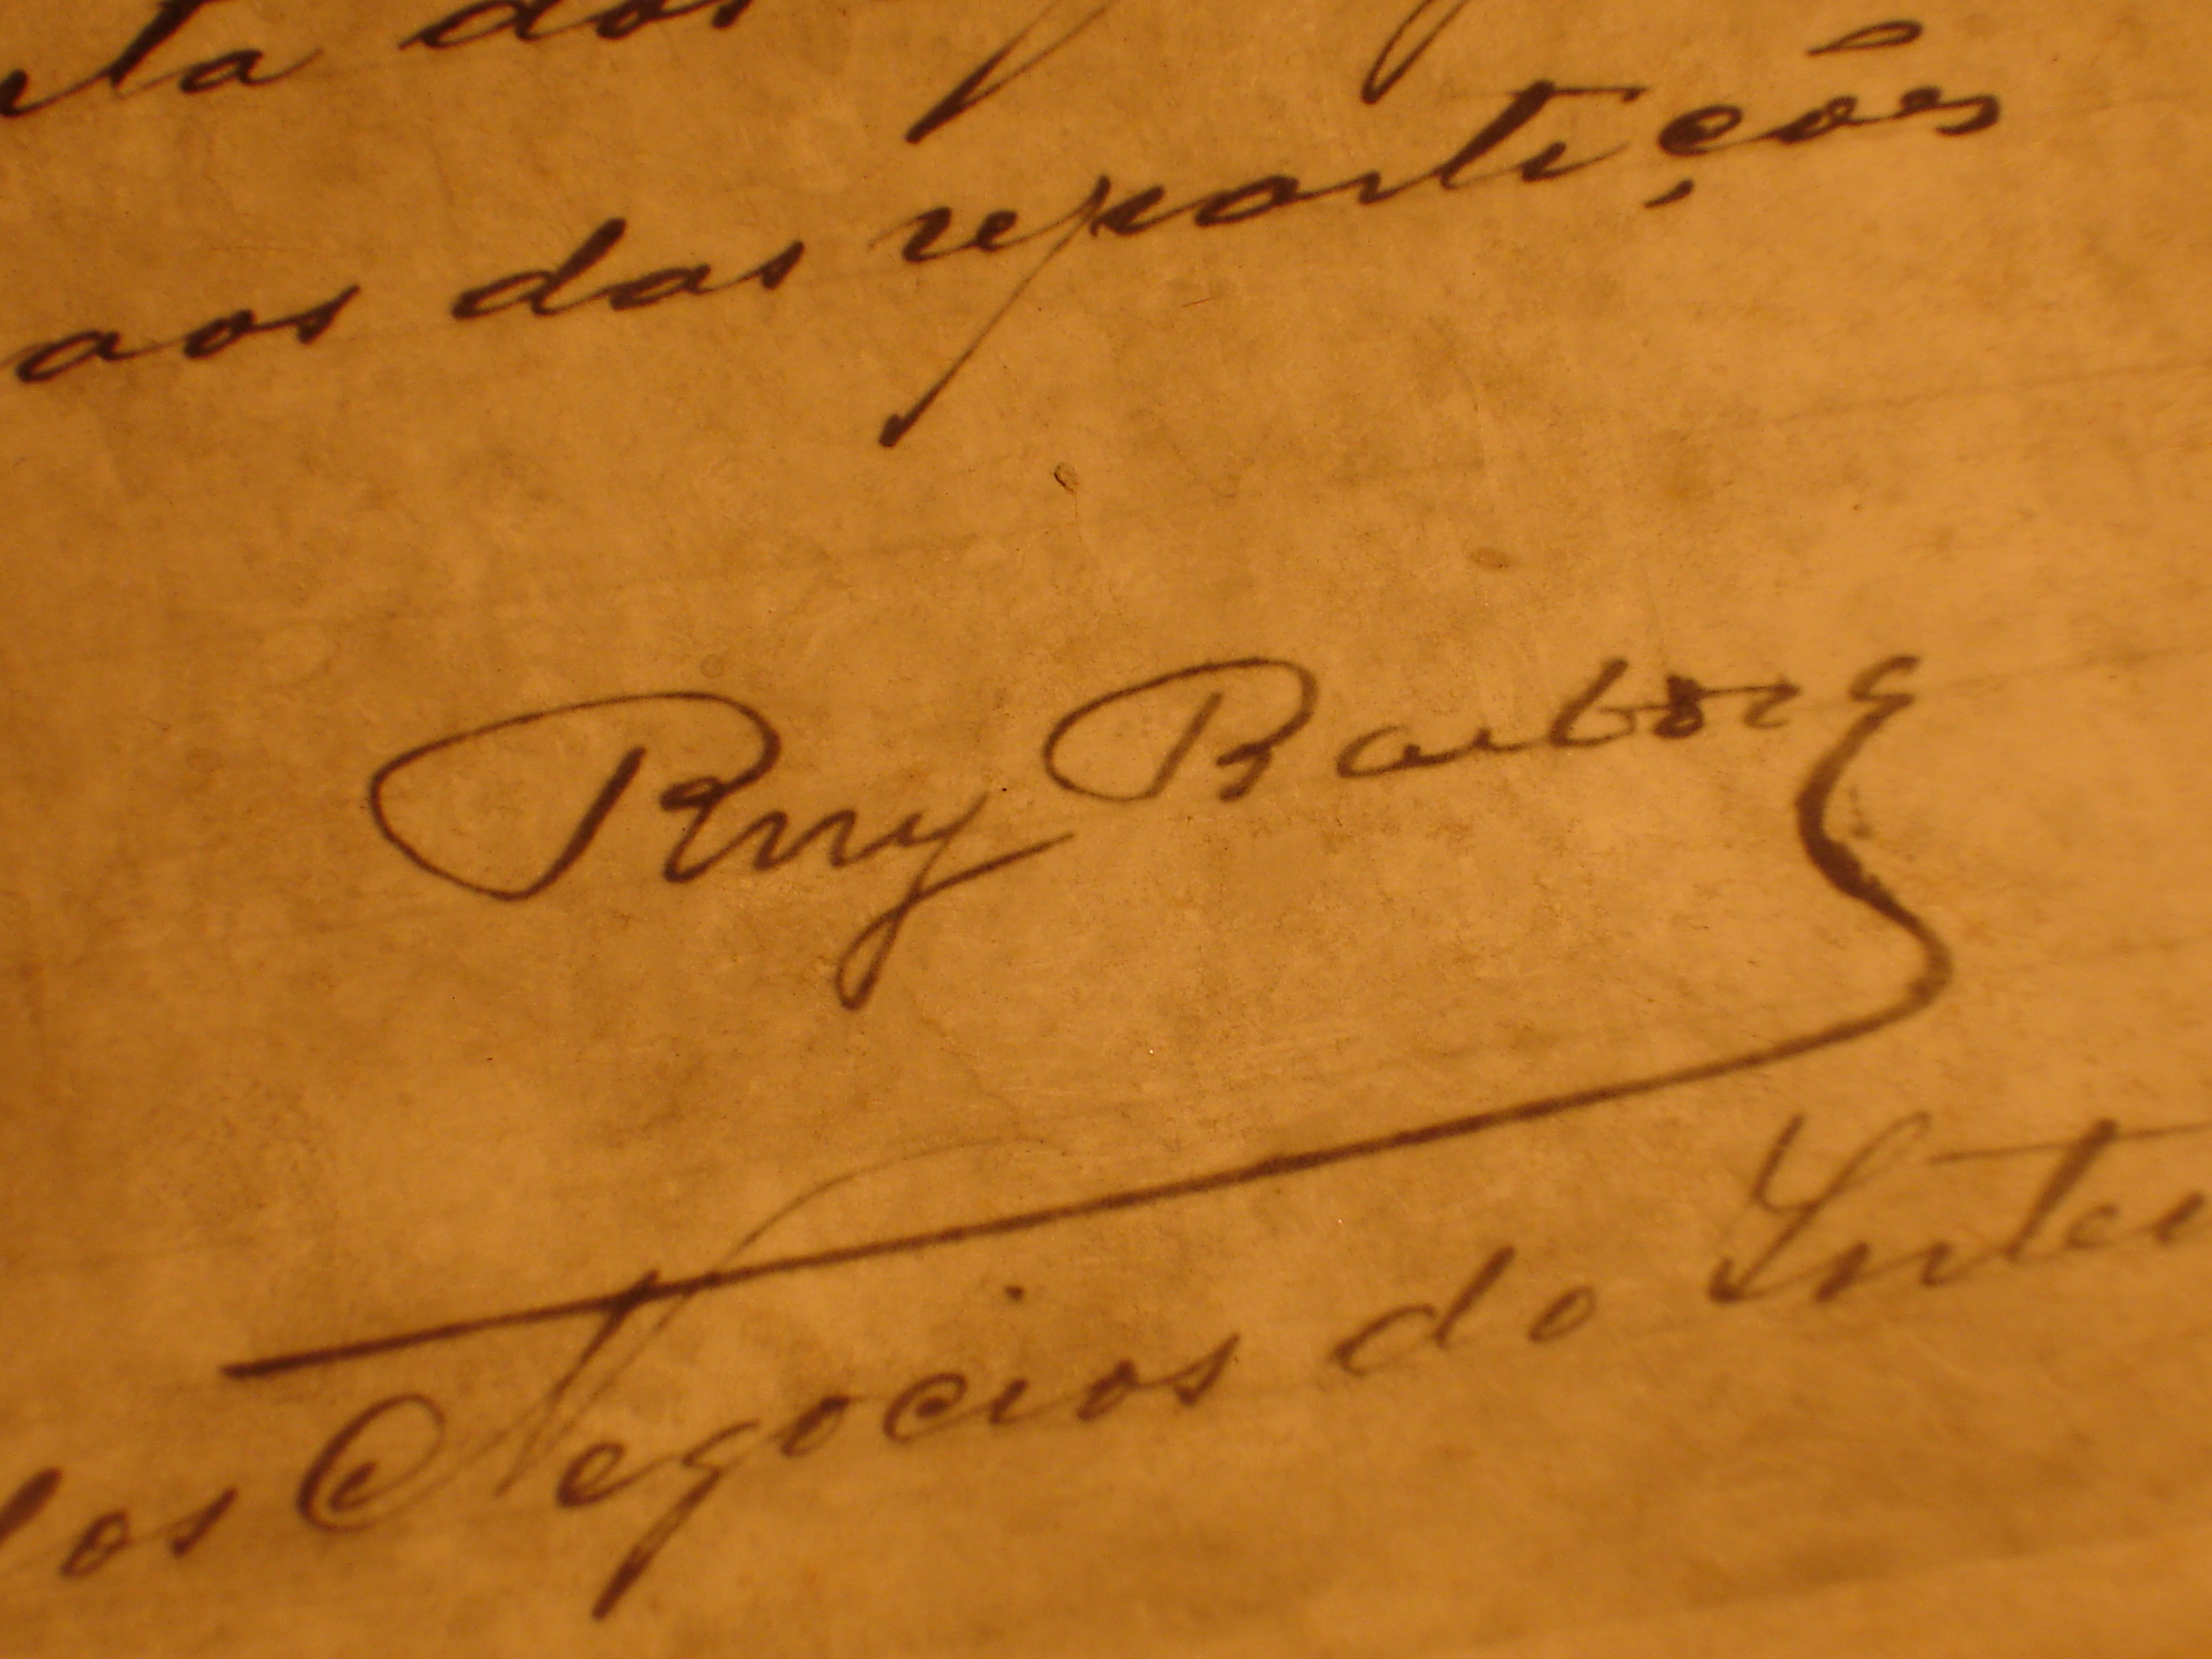 dos
aos das repartições
Ruy Barbosa
dos Negocios do Inter